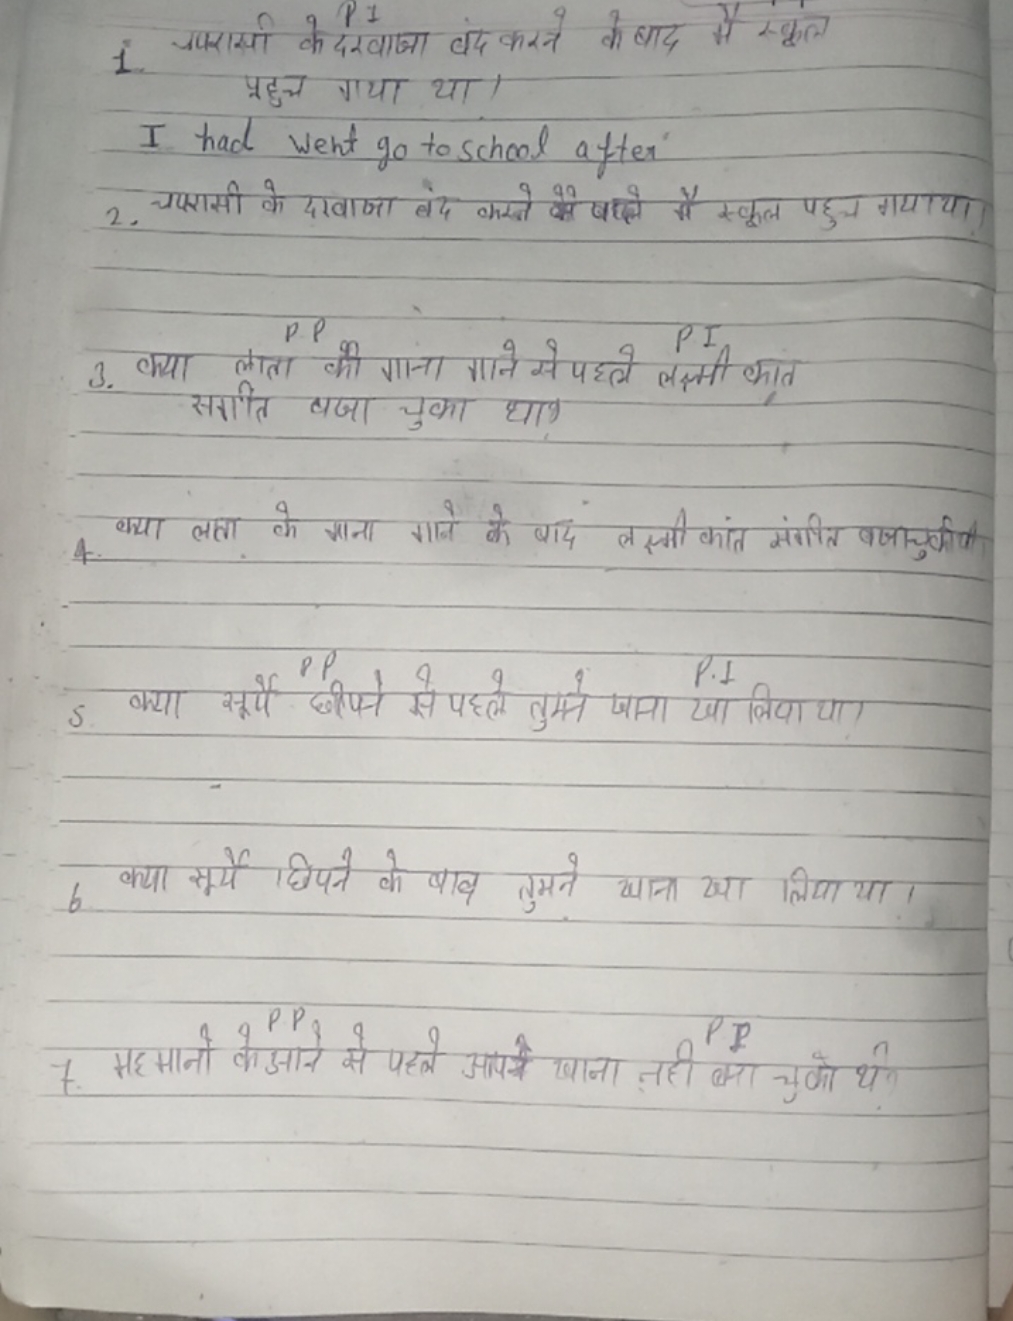 P I
1. चपरासी के दरवाजा बंद करने के बाद मैं स्कूल
पहुच गया था।
I had went go to school after
2. चपरासी के दरवाजा बंद करने से पहले मैं स्कूल पहुच गया था।
P.P P I
3. क्या लाता की गाना गाने से पहले लक्ष्मी कांत
सगीत बजा चुका था?
4. क्या लता के गाना गाने के बाद लक्ष्मी कांत संगीत बजा चुकी थी
P P P.I
5. क्या सूर्य छीपने से पहले तुमने खाना खा लिया था।
6 क्या सूर्य छिपने के बाद तुमने खाना खा लिया था।
P.P. P I
7. महमानो के आने से पहले आपने खाना नही बना चुको थे?